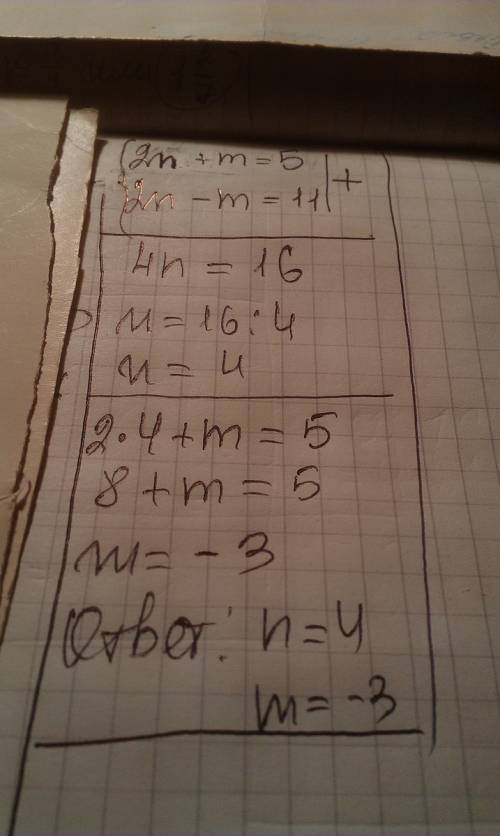 {2n + m = 5
{2n - m = 11 | +
4n = 16
n = 16 : 4
n = 4
2 · 4 + m = 5
8 + m = 5
m = - 3
Ответ: n = 4
m = -3